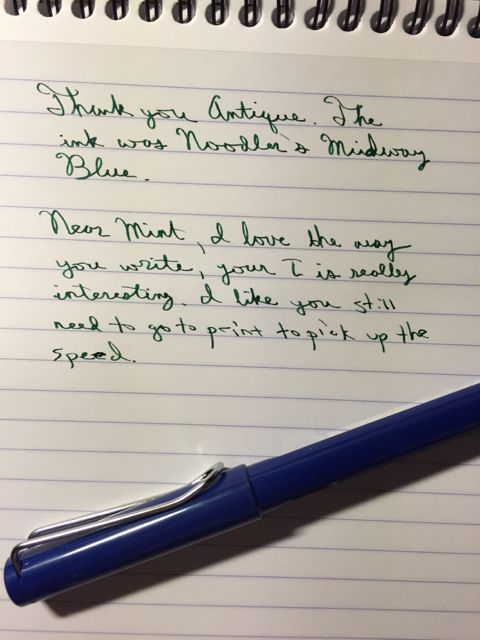 Thank you Antique. The
ink was Noodler's Midway
Blue.
Near Mint, I love the way
you write, your I is really
interesting. I like you still
need to go to print to pick up the
speed.